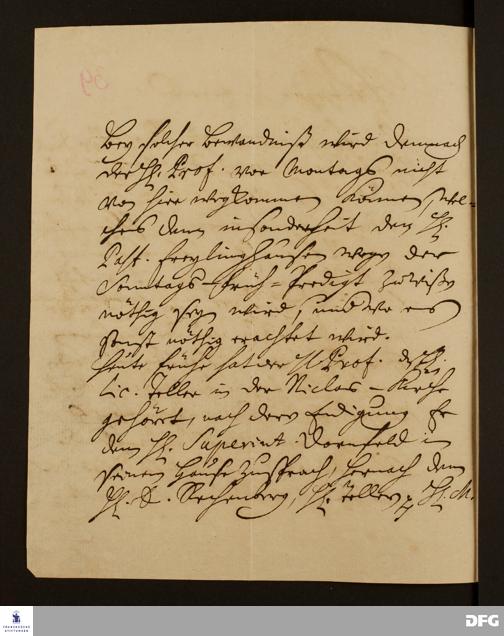 39
Bey solcher Bewandniß wird demnach
der H. Prof. vor Montags nicht
von hier wegkommen können, wel-
ches dann insonderheit dem H.
Past. Freylinghausen wegen der
Sonntags-Früh-Predigt zu wißen
nöthig seyn wird, und wo es
sonst nöthig erachtet wird.
Heute frühe hat der H. Prof. den H.
Lic. Teller in der Niclas-Kirche
gehöret, nach deren Endigung Er
dem H. Superint. Dornfeld in
seinem Hause zusprach, hernach dem
H. D. Rechenberg, H. Teller, H. M.
FRANCKESCHE
STIFTUNGEN
DFG